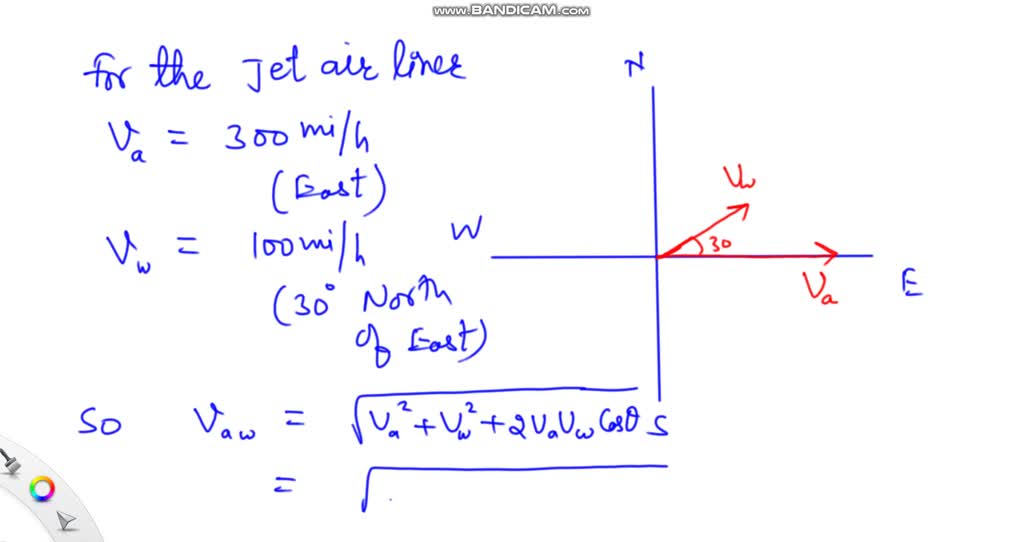 www.BANDICAM.com
for the Jet air liner
Va = 300 mi/h
(East)
Vw = 100 mi/h
(30° North
of East)
N
W
E
S
Vw
30
Va
So Vaw = √Va² + Vw² + 2VaVw Cosθ
= √